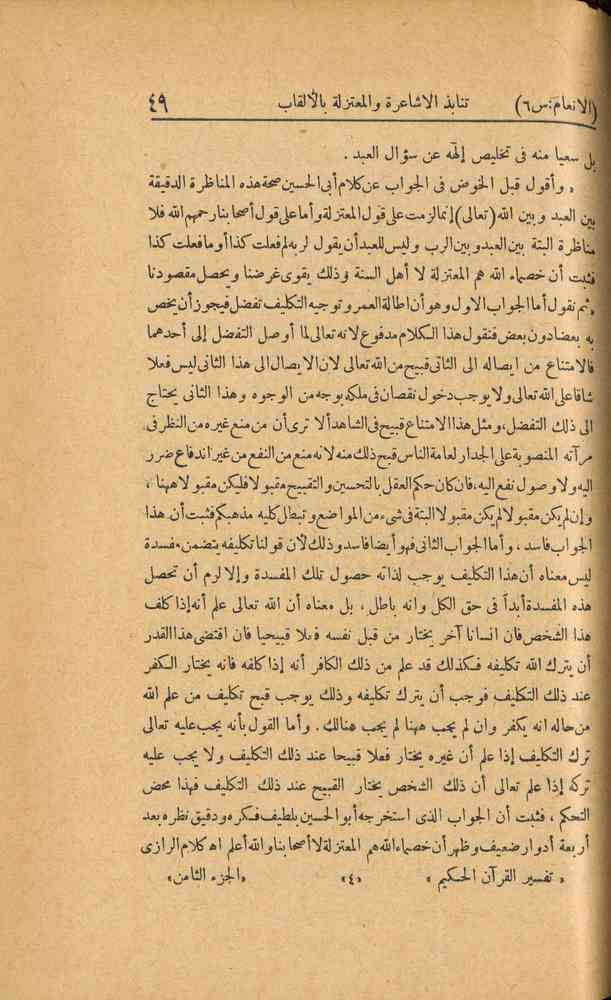 (الانعام:س٦) تنابذ الاشاعرة والمعتزلة بالألقاب ٤٩
بل سعيا منه فى تخليص إلهه عن سؤال العبد .
« وأقول قبل الخوض فى الجواب عن كلام أبى الحسين صحة هذه المناظرة الدقيقة
بين العبد وبين الله (تعالى) إنما لزمت على قول المعتزلة وأما على قول أصحابنا رحمهم الله فلا
مناظرة البتة بين العبد وبين الرب وليس للعبد أن يقول لربه لم فعلت كذا أو ما فعلت كذا
فثبت أن خصماء الله هم المعتزلة لا أهل السنة وذلك يقوى غرضنا ويحصل مقصودنا
« ثم نقول أما الجواب الاول وهو أن اطالة العمر وتوجيه التكليف تفضل فيجوز أن يخص
به بعضا دون بعض فنقول هذا الكلام مدفوع لانه تعالى لما أوصل التفضل إلى أحدهما
فالامتناع من ايصاله الى الثانى قبيح من الله تعالى لان الايصال الى هذا الثانى ليس فعلا
شاقا على الله تعالى ولا يوجب دخول نقصان فى ملكه بوجه من الوجوه وهذا الثانى يحتاج
الى ذلك التفضل، ومثل هذا الامتناع قبيح فى الشاهد ألا ترى أن من منع غيره من النظر فى
مرآته المنصوبة على الجدار لعامة الناس قبح ذلك منه لانه منع من النفع من غير اندفاع ضرر
اليه ولا وصول نفع اليه، فان كان حكم العقل بالتحسين والتقبيح مقبولا فليكن مقبولا ههنا ،
وإن لم يكن مقبولا لم يكن مقبولا البتة فى شىء من المواضع وتبطل كلية مذهبكم فثبت أن هذا
الجواب فاسد ، وأما الجواب الثانى فهو أيضا فاسد وذلك لأن قولنا تكليفه يتضمن مفسدة
ليس معناه أن هذا التكليف يوجب لذاته حصول تلك المفسدة وإلا لزم أن تحصل
هذه المفسدة أبداً فى حق الكل وانه باطل، بل معناه أن الله تعالى علم أنه إذا كلف
هذا الشخص فان انسانا آخر يختار من قبل نفسه فعلا قبيحيا فان اقتضى هذا القدر
أن يترك الله تكليفه فكذلك قد علم من ذلك الكافر أنه إذا كلفه فانه يختار الكفر
عند ذلك التكليف فوجب أن يترك تكليفه وذلك يوجب قبح تكليف من علم الله
من حاله انه يكفر وان لم يجب ههنا لم يجب هنالك . وأما القول بأنه يجب عليه تعالى
ترك التكليف إذا علم أن غيره يختار فعلا قبيحا عند ذلك التكليف ولا يجب عليه
تركه إذا علم تعالى أن ذلك الشخص يختار القبيح عند ذلك التكليف فهذا محض
التحكم ، فثبت أن الجواب الذى استخرجه أبو الحسين بلطيف فكره ودقيق نظره بعد
أربعة أدوار ضعيف وظهر أن خصماء الله هم المعتزلة لا أصحابنا والله أعلم اه كلام الرازى
« تفسير القرآن الحكيم » «٤» «الجزء الثامن»